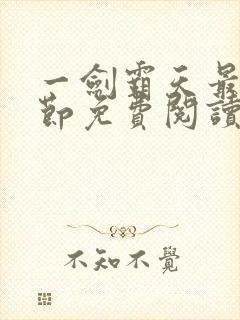 一劍霸天最
節免費閱讀
不知不覺